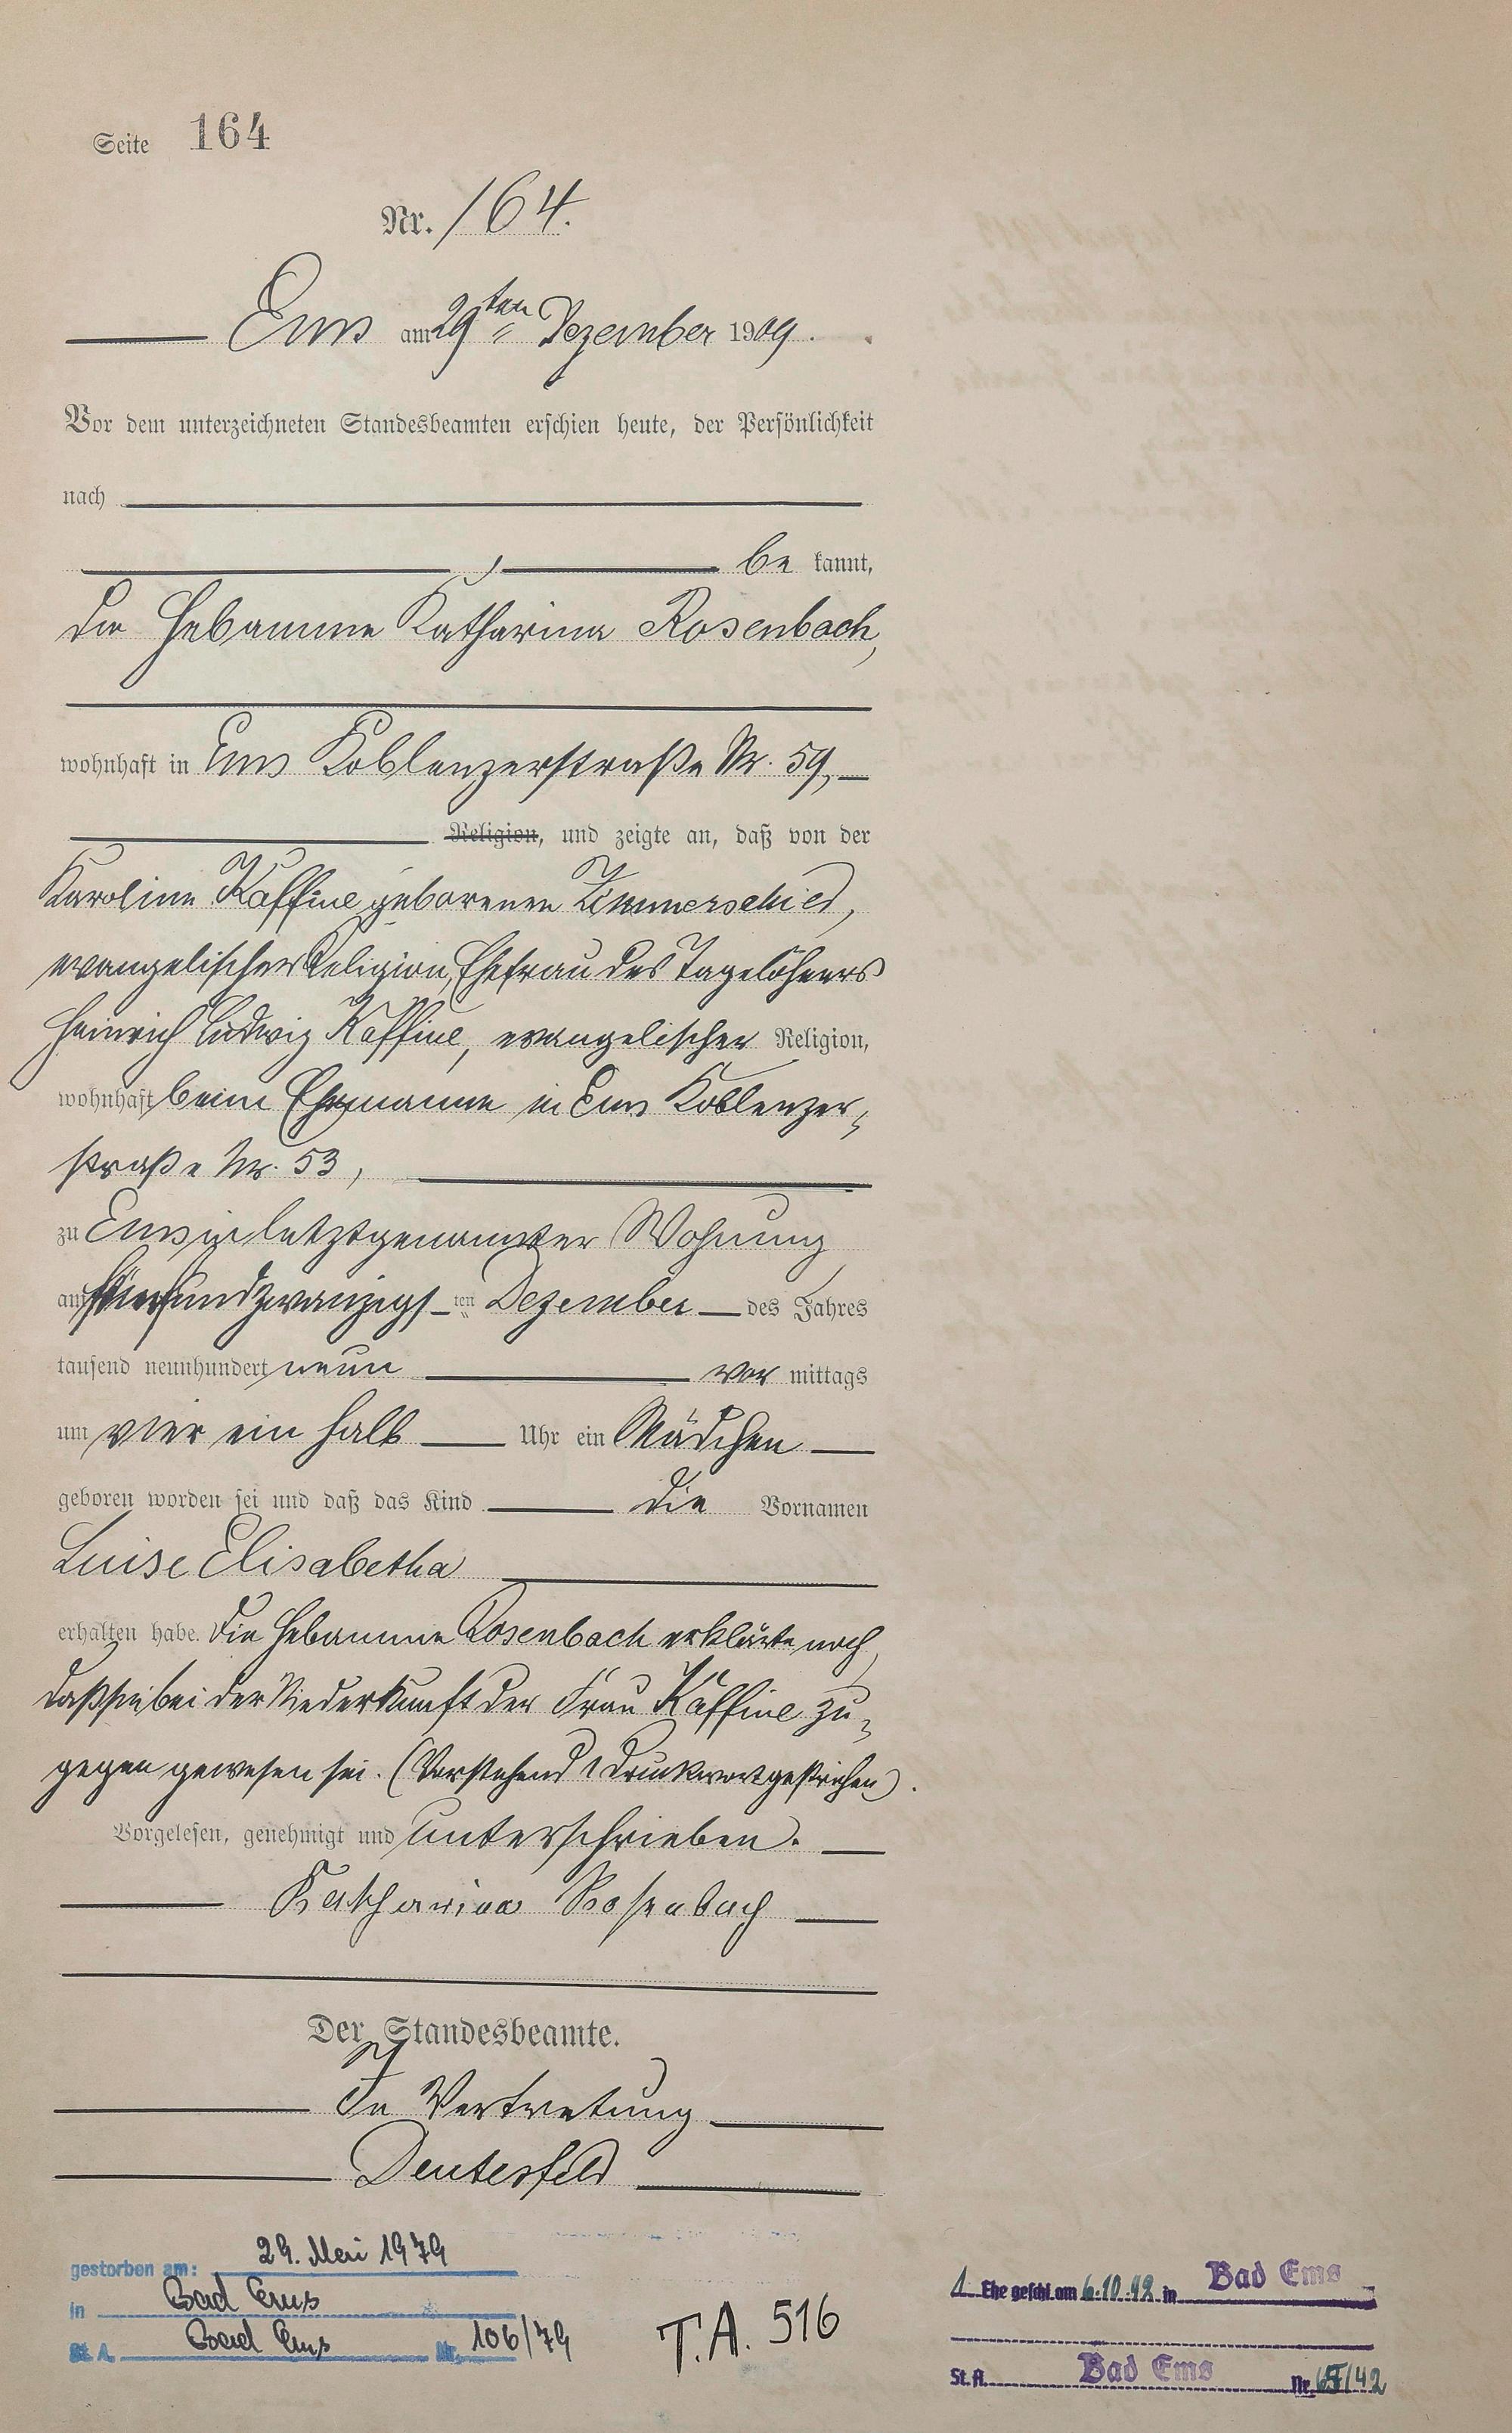 Seite 164
Nr. 164.
Ems am 29ten Dezember 1909.
Vor dem unterzeichneten Standesbeamten erschien heute, der Persönlichkeit
nach
, be kannt,
die Hebamme Katharina Rosenbach,
wohnhaft in Ems Koblenzerstraße Nr. 59,
Religion, und zeigte an, daß von der
Karoline Kaffine geborenen Zimmerschied,
evangelischer Religion, Ehefrau des Tagelöhners
Heinrich Ludwig Kaffine, evangelischer Religion,
wohnhaft beim Ehemanne in Ems Koblenzer-
straße Nr. 53,
zu Ems in letztgenannter Wohnung
am undzwanzigs ten Dezember des Jahres
tausend neunhundert neun vor mittags
um vier ein halb Uhr ein Mädchen
geboren worden sei und daß das Kind die Vornamen
Luise Elisabetha
erhalten habe. Die Hebamme Rosenbach erklärte noch,
daß sie bei der Niederkunft der Frau Kaffine zu-
gegen gewesen sei. (Vorstehend 1 Druckwort gestrichen).
Vorgelesen, genehmigt und unterschrieben.
Katharina Rosenbach
Der Standesbeamte.
In Vertretung
Deutesfeld
gestorben am: 29. Mai 1979
in Bad Ems
St. A. Bad Ems Nr. 106/79
T.A. 516
1 Ehe geschl. am 6.10.42 in Bad Ems
St. A. Bad Ems Nr. /42